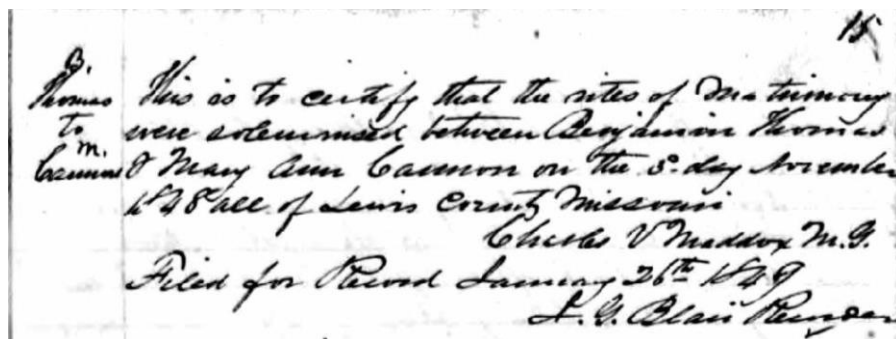 15
B. Thomas
to
M. Cannon
This is to certify that the rites of Matrimony
were solemnised between Benjamin Thomas
& Mary Ann Cannon on the 5. day November
1848 all of Lewis County Missouri
Charles V Maddox M.G.
Filed for Record January 26th 1849
G. Blair Recorder